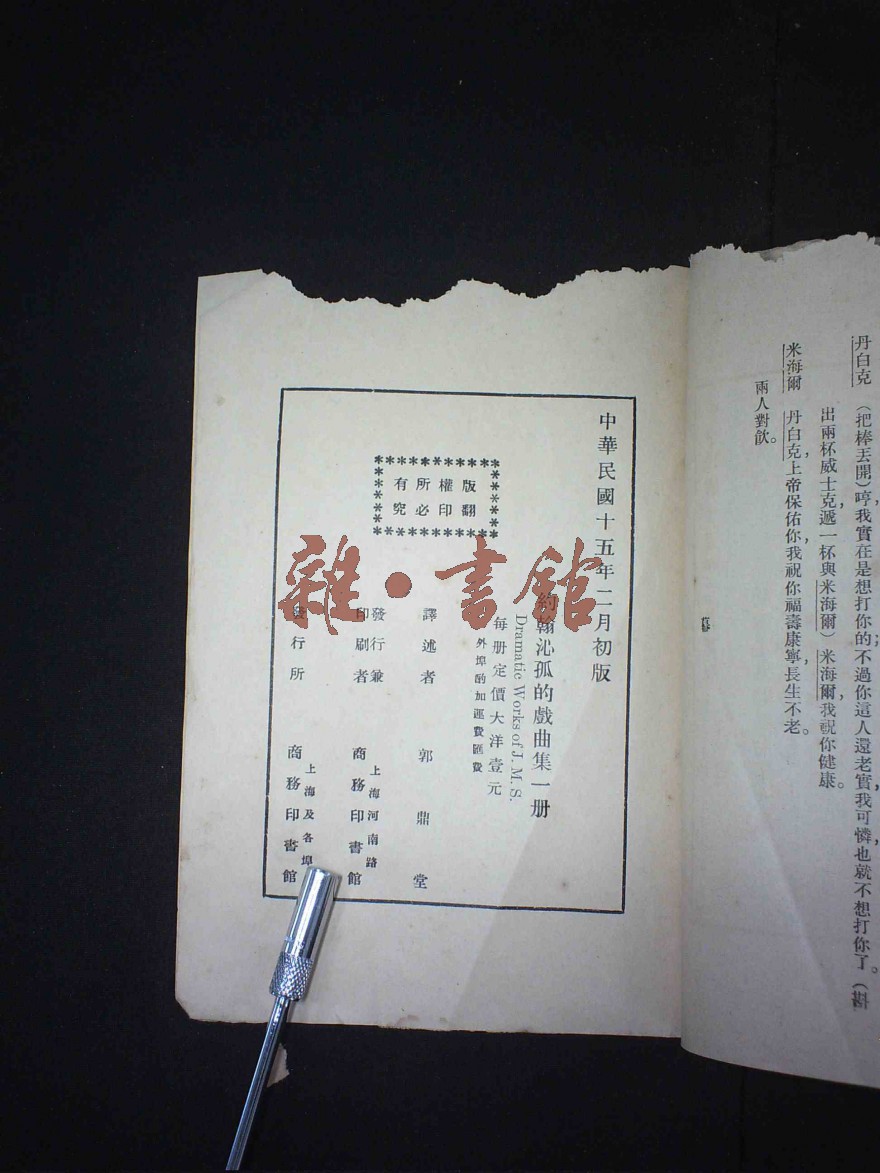 丹白克 （把棒丟開）哼，我實在是想打你的；不過你這人還老實，我可憐也就不想打你了。（斟
出兩杯威士克，遞一杯與米海爾）米海爾，我祝你健康。
米海爾 丹白克，上帝保佑你，我祝你福壽康寧，長生不老。
兩人對飲。
幕
中華民國十五年二月初版
約翰沁孤的戲曲集一册
Dramatic Works of J. M. S.
每册定價大洋壹元
外埠酌加運費匯費
版權所有
翻印必究
譯述者 郭鼎堂
發行兼印刷者 上海河南路 商務印書館
發行所 上海及各埠 商務印書館
雜·書館